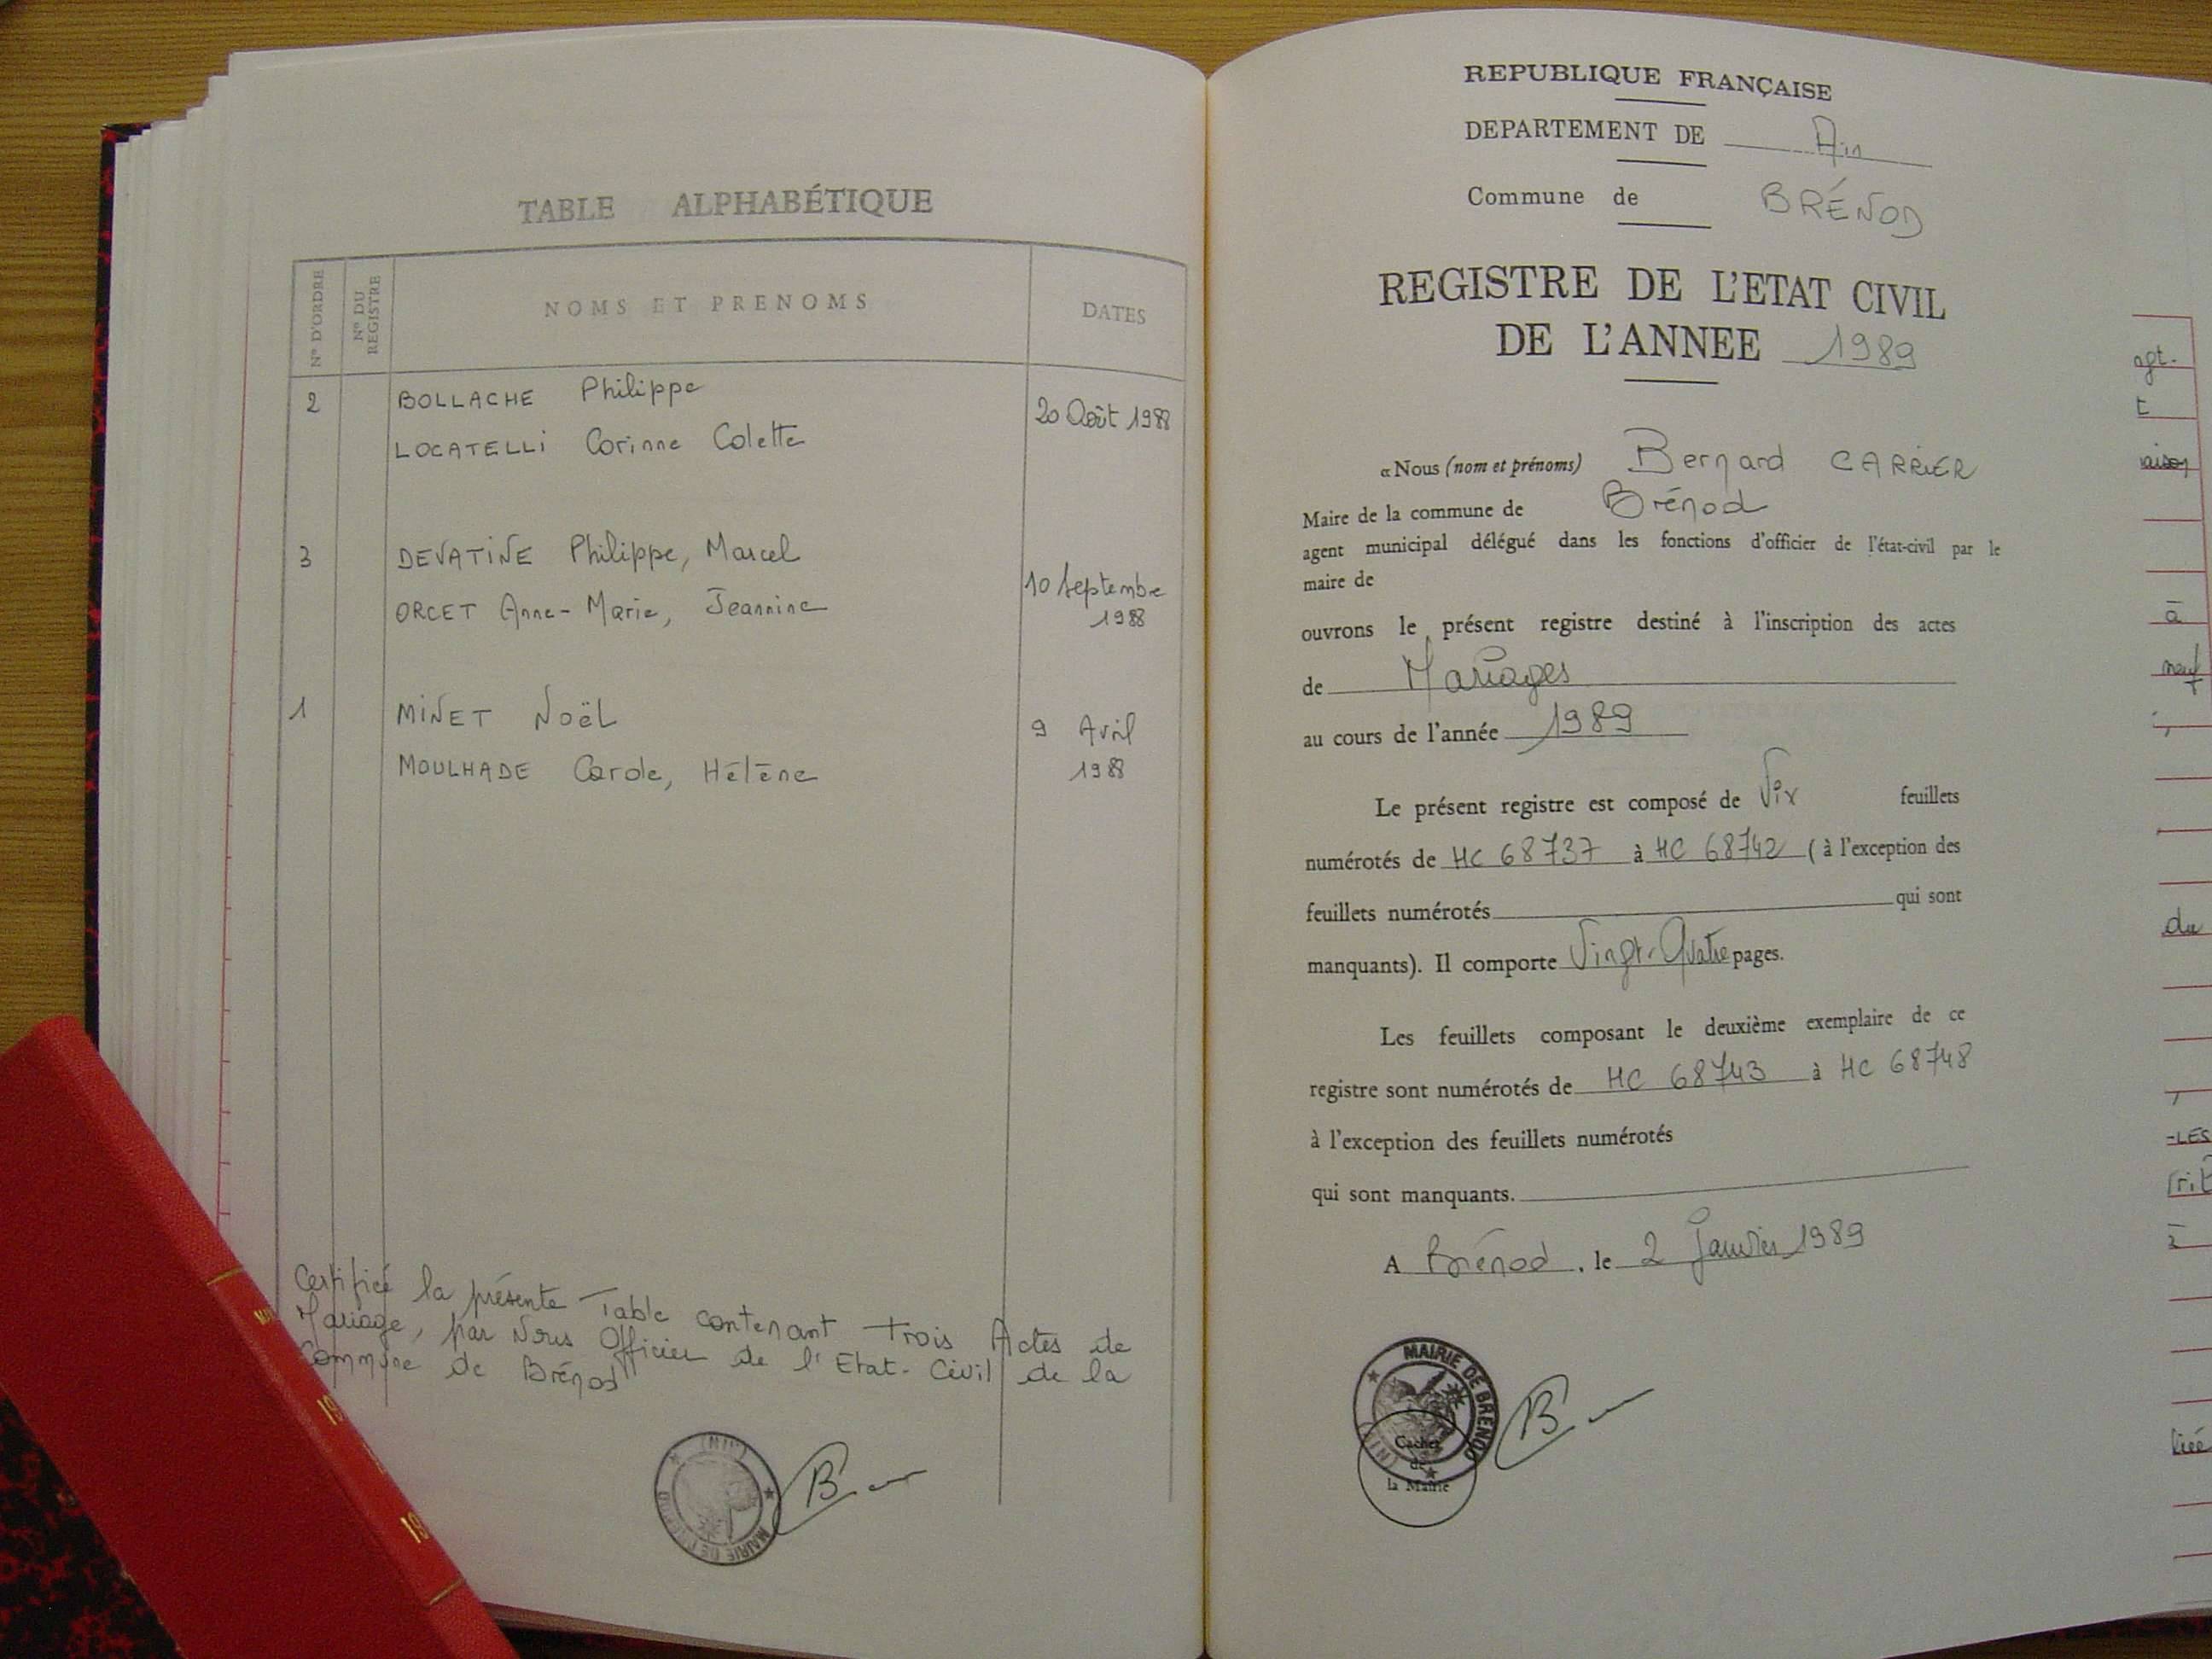 TABLE ALPHABÉTIQUE
N° D'ORDRE
N° DU REGISTRE
NOMS ET PRENOMS
DATES
2 BOLLACHE Philippe
20 Août 1988
LOCATELLI Corinne Colette
3 DEVATINE Philippe, Marcel
10 Septembre
ORCET Anne-Marie, Jeannine
1988
1 MINET Noël
9 Avril
MOULHADE Carole, Hélène
1988
Certifié la présente Table contenant Trois Actes de
Mariage, par Nous Officier de l'Etat-Civil de la
Commune de Brénod
REPUBLIQUE FRANÇAISE
DEPARTEMENT DE Ain
Commune de BRÉNOD
REGISTRE DE L'ETAT CIVIL
DE L'ANNEE 1989
«Nous (nom et prénoms) Bernard CARRIER
Maire de la commune de Brénod
agent municipal délégué dans les fonctions d'officier de l'état-civil par le
maire de
ouvrons le présent registre destiné à l'inscription des actes
de Mariages
au cours de l'année 1989
Le présent registre est composé de Six feuillets
numérotés de HC 68737 à HC 68742 (à l'exception des
feuillets numérotés qui sont
manquants). Il comporte Vingt-Quatre pages.
Les feuillets composant le deuxième exemplaire de ce
registre sont numérotés de HC 68743 à HC 68748
à l'exception des feuillets numérotés
qui sont manquants.
A Brénod, le 2 Janvier 1989
MAIRIE DE BRENOD
(AIN)
Cachet
de
la Mairie